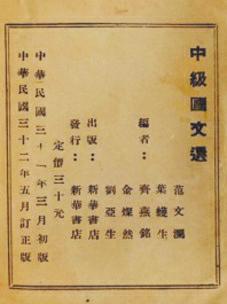 中級國文選
范文瀾
葉蠖生
編者：齊燕銘
金燦然
劉亞生
出版：新華書店
發行：新華書店
定價三十元
中華民國三十一年三月初版
中華民國三十二年五月訂正版